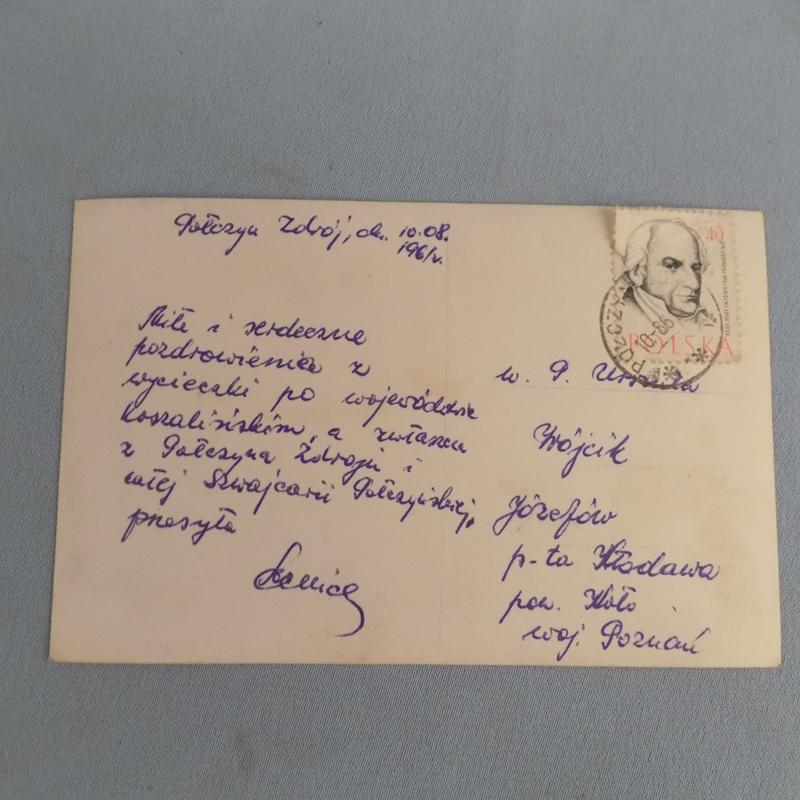 Połczyn Zdrój, dn. 10.08.
1961r.
Miłe i serdeczne
pozdrowienia z
wycieczki po województwie
koszalińskim, a zwłaszcza
z Połczyna Zdroju i
całej Szwajcarii Połczyńskiej,
przesyła
40
POLSKA
POŁCZYN
W. P. Urszula
Wójcik
Józefów
p-ta Kłodawa
pow. Koło
woj. Poznań